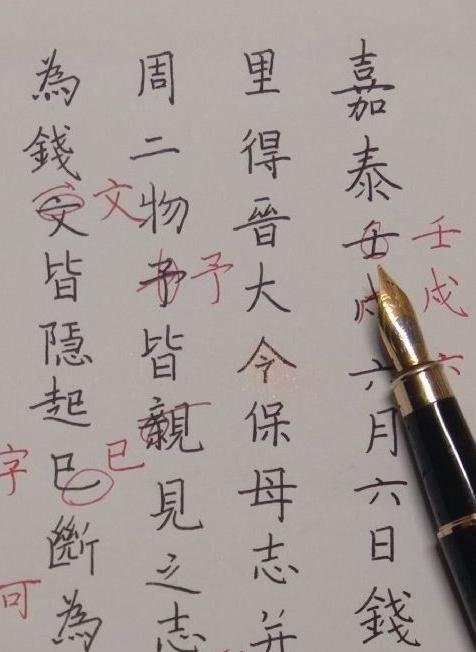 壬戌六
嘉泰壬戌六月六日錢
里得晉大令保母志并
予
周二物予皆親見之志
文
巳
為錢文皆隱起巳斷為
字
可